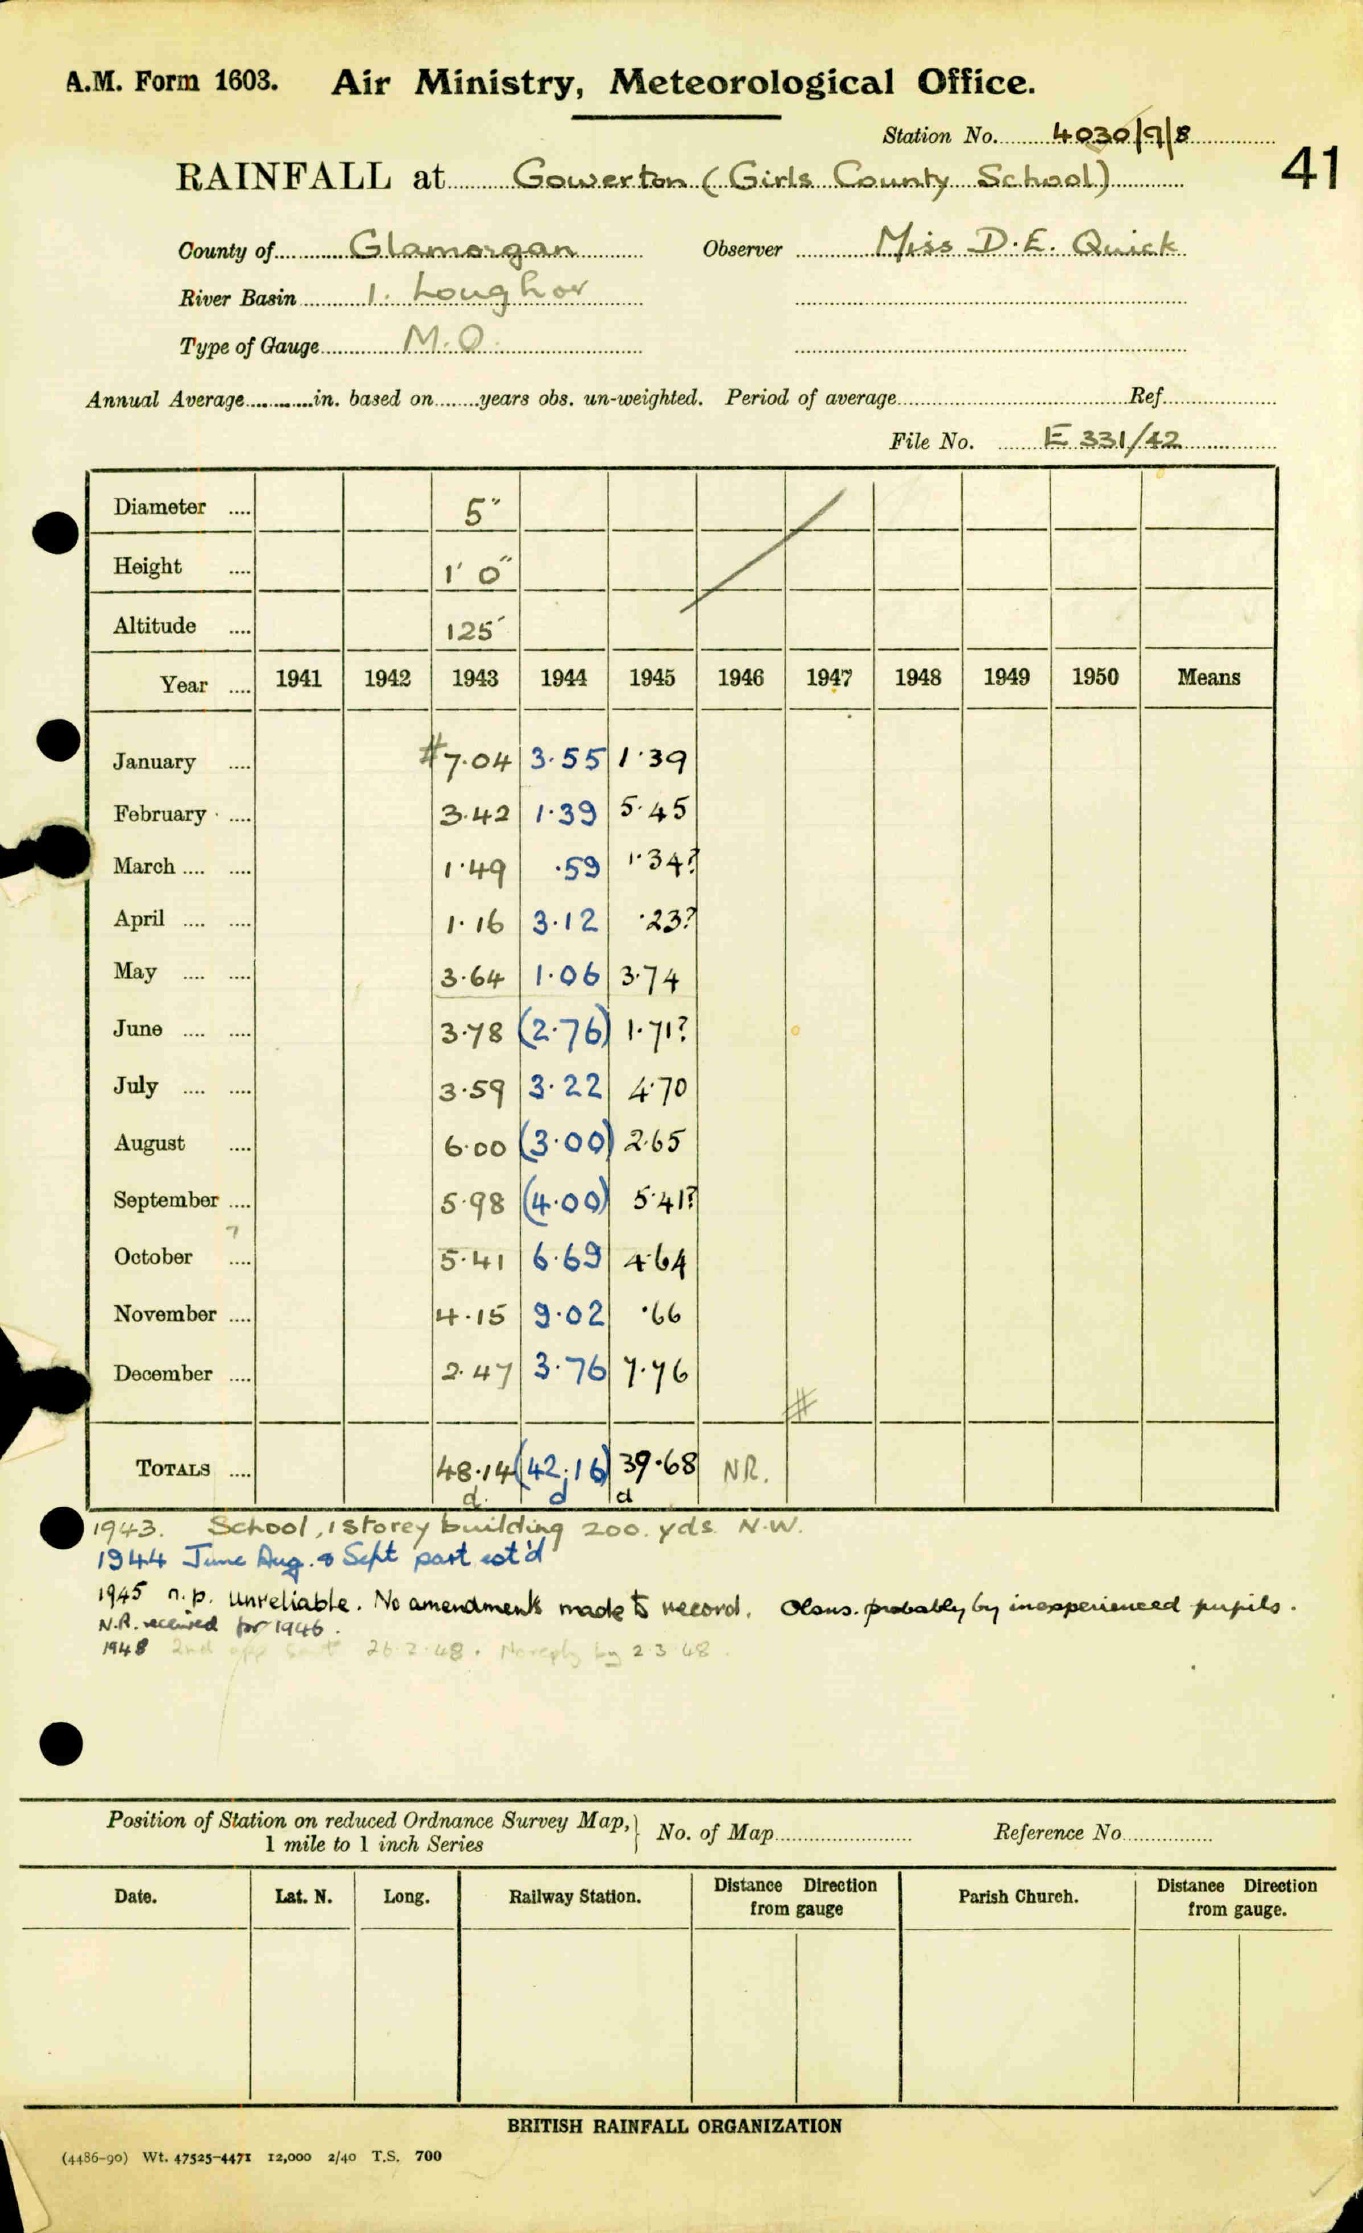 A.M. Form 1603. Air Ministry, Meteorological Office.
Station No. 4030/9/8
41
RAINFALL at Gowerton (Girls County School)
County of Glamorgan Observer Miss D.E. Quick
River Basin 1. Loughor
Type of Gauge M.O.
Annual Average in. based on years obs. un-weighted. Period of average Ref
File No. E 331/42
Diameter 5"
Height 1' 0"
Altitude 125'
Year 1941 1942 1943 1944 1945 1946 1947 1948 1949 1950 Means
January #7.04 3.55 1.39
February 3.42 1.39 5.45
March 1.49 .59 1.34?
April 1.16 3.12 .23?
May 3.64 1.06 3.74
June 3.78 (2.76) 1.71?
July 3.59 3.22 4.70
August 6.00 (3.00) 2.65
September 5.98 (4.00) 5.41?
October 5.41 6.69 4.64
November 4.15 9.02 .66
December 2.47 3.76 7.76
#
TOTALS 48.14 (42.16) 39.68 NR.
d. d d
1943. School, 1 storey building 200. yds. N.W.
1944 June Aug. & Sept part est'd
1945 n.p. Unreliable. No amendments made to record. Obsns. probably by inexperienced pupils.
N.R. received for 1946.
1948 2nd app sent 26.2.48. No reply by 2.3.48.
Position of Station on reduced Ordnance Survey Map, 1 mile to 1 inch Series } No. of Map Reference No
Date. Lat. N. Long. Railway Station. Distance Direction from gauge Parish Church. Distance Direction from gauge.
BRITISH RAINFALL ORGANIZATION
(4486-90) Wt. 47525-4471 12,000 2/40 T.S. 700